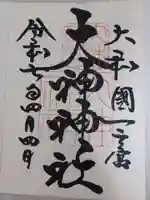 大和國一宮
大神神社
令和七年四月四日